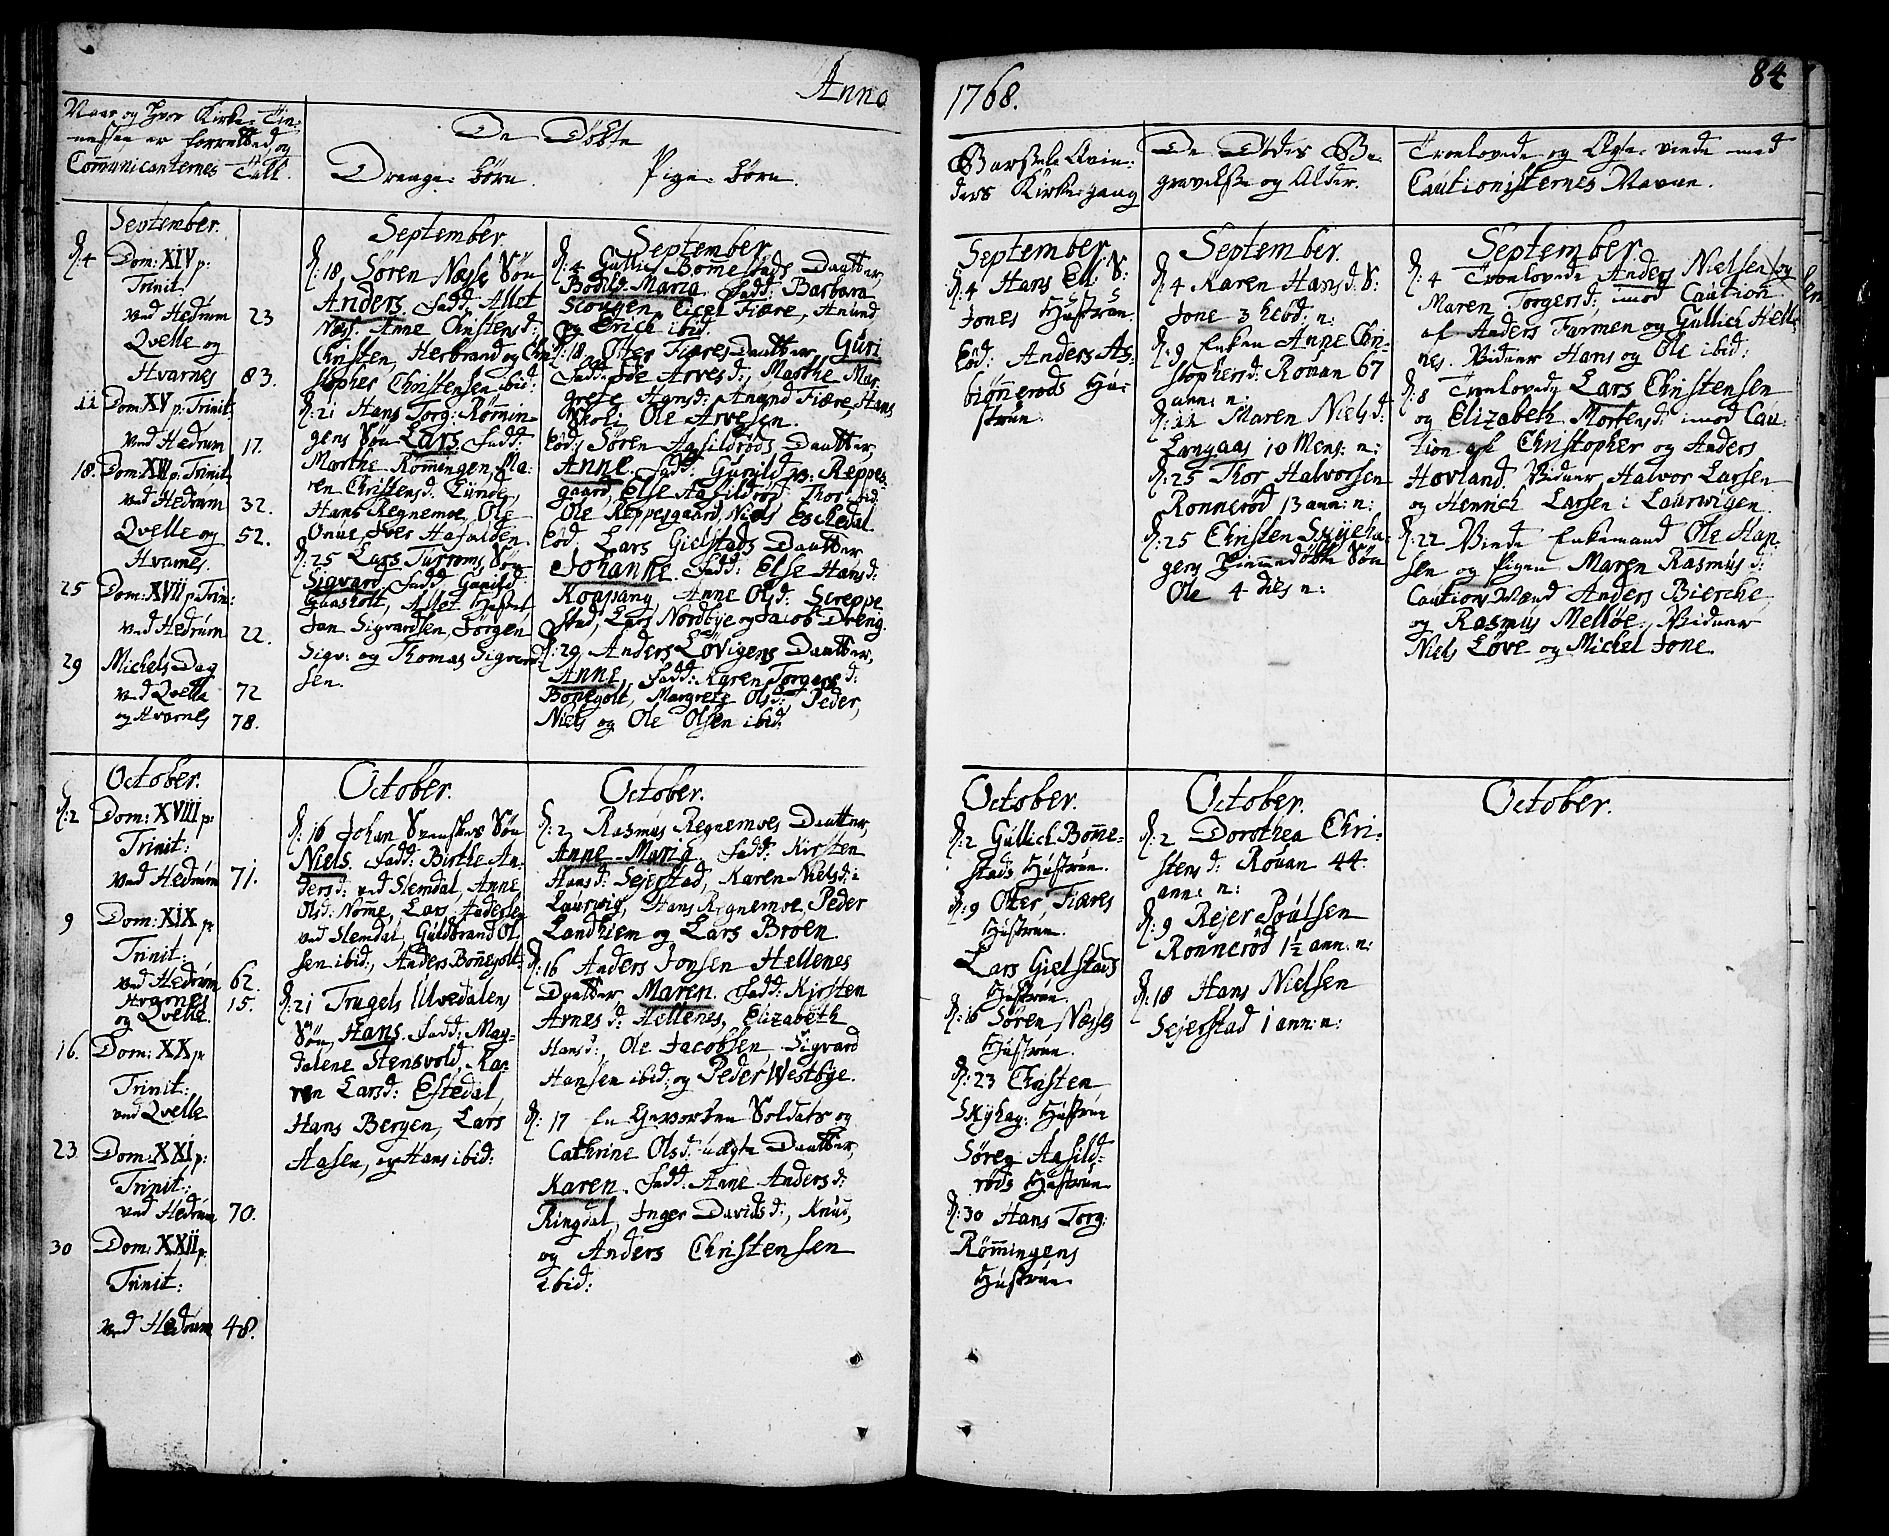 Anno
1768.
84
Naar og hvor Kirke-Tie-
nesten er forretted, og
Communicanternes Tall.
De Döbte
Drenge-börn.
Pige-börn.
Barsele Qvin-
ders Kirkegang
De Dödes Be-
gravelse og Alder.
Troelovede og Ægte-viede med
Cautionisternes Navne.
September.
d: 4 Dom: XIV p:
Trinit:
ved Hedrum 23
Qvelle og
Hvarnes 83.
11 Dom: XV p: Trinit:
ved Hedrum 17.
18. Dom: XVI p: Trinit:
ved Hedrum 32.
Qvelle og 52.
Hvarnes.
25 Dom: XVII p: Trin:
ved Hedrum 22.
29 Michels Dag
ved Qvelle 72
og Hvarnes 78.
September.
d: 18. Sören Næsses Sön
Anders. Fadd: Allet
Næss: Anne Christensd:
Christen Herbrand og Chri
stopher Christensen ibid:
d: 21 Hans Torg: Römin-
gens Sön Lars. Fadd:
Marthe Römingen, Ma-
ren Christensd: Lunde,
Hans Regnemoe, Ole
Onue Iver Hafalden.
d: 25 Lars Sön
Sigvard. Fadd: Gunild
Gaasholt, Allet
Jan Sigvardsen, Jörgen
Sigv: og Thomas Sigvard
sen.
September.
d: 4 Gullic Bomestads Daatter,
Bodild-Maria. Fadd: Barbara
Skougen, Eicel Fiære, Anund
og Erich ibid:
d: 18. Oter Fiæres Daatter, Guri
Fadd: Joe Arvesd:, Marthe Mar-
grete Agnsd: Anund Fiære, Hans
Skoli Ole Arvesen.
Eod: Sören Aasildröds Daatter,
Anne. Fadd: Gunild Reppes-
gaard, Else Aasildröd Thor ibid:
Ole Reppesgaard, Niels Eschedal.
Eod: Lars Gielstads Daatter
Johanne. Fadd: Else Hansd:
Roapang, Anne Olsd: Sereppe-
stad, Lars Nordbye og Jacob Dreng.
d: 29 Anders Lövigens Daatter,
Anne, Fadd: Karen Torgersd:
Bonegolt, Margrete Olsd: Peder,
Niels og Ole Olsen ibid:
September.
d: 4 Hans Ell: S:
Jones Hustrue.
Eod: Anders As-
biönneröds Hu-
strue.
September.
d: 4 Karen Hansd: S:
Jone 3 hebd: n:
d: 9 Enken Anne Chri-
stophersd: Rouan 67
ann: n:
d: 11 Maren Nielsd:
Langaas 10 Mens: n:
d: 25 Thor Halvorsen
Ronneröd 13 ann: n:
d: 25 Christen Skyeha-
gens hiemmedöbte Sön
Ole 4 dies n:
September.
d: 4 Troelovede Anders Nielsen og
Maren Torgersd: imod Caution
af Anders Farmen og Gullich Helle-
nes. Vidner Hans og Ole ibid:
d: 8 Troelovede Lars Christensen
og Elizabeth Mortensd: imod Cau-
tion af Christopher og Anders
Hovland. Vidner Halvor Larsen
og Henrich Larsen i Laurwigen.
d: 22 Viede Enkemand Ole Han-
sen og Pigen Maren Rasmusd:
Cautions Mænd Anders Bierche
og Rasmus Mellöe. Vidner
Niels Löve og Michel Jone.
October.
d: 2 Dom: XVIII p:
Trinit:
ved Hedrum 71.
9 Dom: XIX p:
Trinit:
ved Hedrum 62.
Hvarnes 15.
og Qvelle.
16. Dom: XX p:
Trinit:
ved Qvelle
23 Dom: XXI p:
Trinit:
ved Hedrum 70.
30 Dom: XXII p:
Trinit:
ved Hedrum 48.
October.
d: 16 Johan Svenskes Sön
Niels. Fadd: Birthe An-
dersd: ved Slemdal, Anne
Olsd: Nomme, Lars Andersen
ved Slemdal, Guldbrand Ol-
sen ibid:, Anders Bonegolt.
d: 21 Trugels Ulvedalens
Sön, Hans. Fadd: Mag-
dalene Stensvold, Ka-
ren Larsd: Estedal,
Hans Bergen, Lars
Aasen, og Hans ibid:
October.
d: 2 Rasmus Regnemoes Daatter,
Anne-Maria. Fadd: Kirsten
Hansd: Sejerstad, Karen Nielsd: i
Laurwig, Hans Regnemoe, Peder
Landhiem og Lars Broen.
d: 16 Anders Jonsen Hellenes
Daatter Maren. Fadd: Kirsten
Arnesd: Hellenes, Elizabeth
Hansd:, Ole Jacobsen, Sigvard
Hansen ibid: og Peder Westbye.
d: 17 En Geworben Soldats og
Cathrine Olsd: uægte Daatter,
Karen. Fadd: Anne Andersd:
Ringdal, Inger Davidsd:, Knud,
og Anders Christensen
ibid:
October.
d: 2 Gullich Bomme-
stads Hustrue.
d: 9 Oter Fiæres
Hustrue.
Lars Gielstads
Hustrue.
d: 16 Sören Næsses
Hustrue.
d: 23 Christen
Skyhag: Hustrue
Sören Aasild-
röds Hustrue
d: 30 Hans Torg:
Römmingens
Hustrue
October.
d: 2 Dorothea Chri-
stensd: Rouan 44.
ann: n:
d: 9 Rejer Poulsen
Ronneröd 1½ ann: n:
d: 18 Hans Nielsen
Sejerstad 1 ann: n:
October.